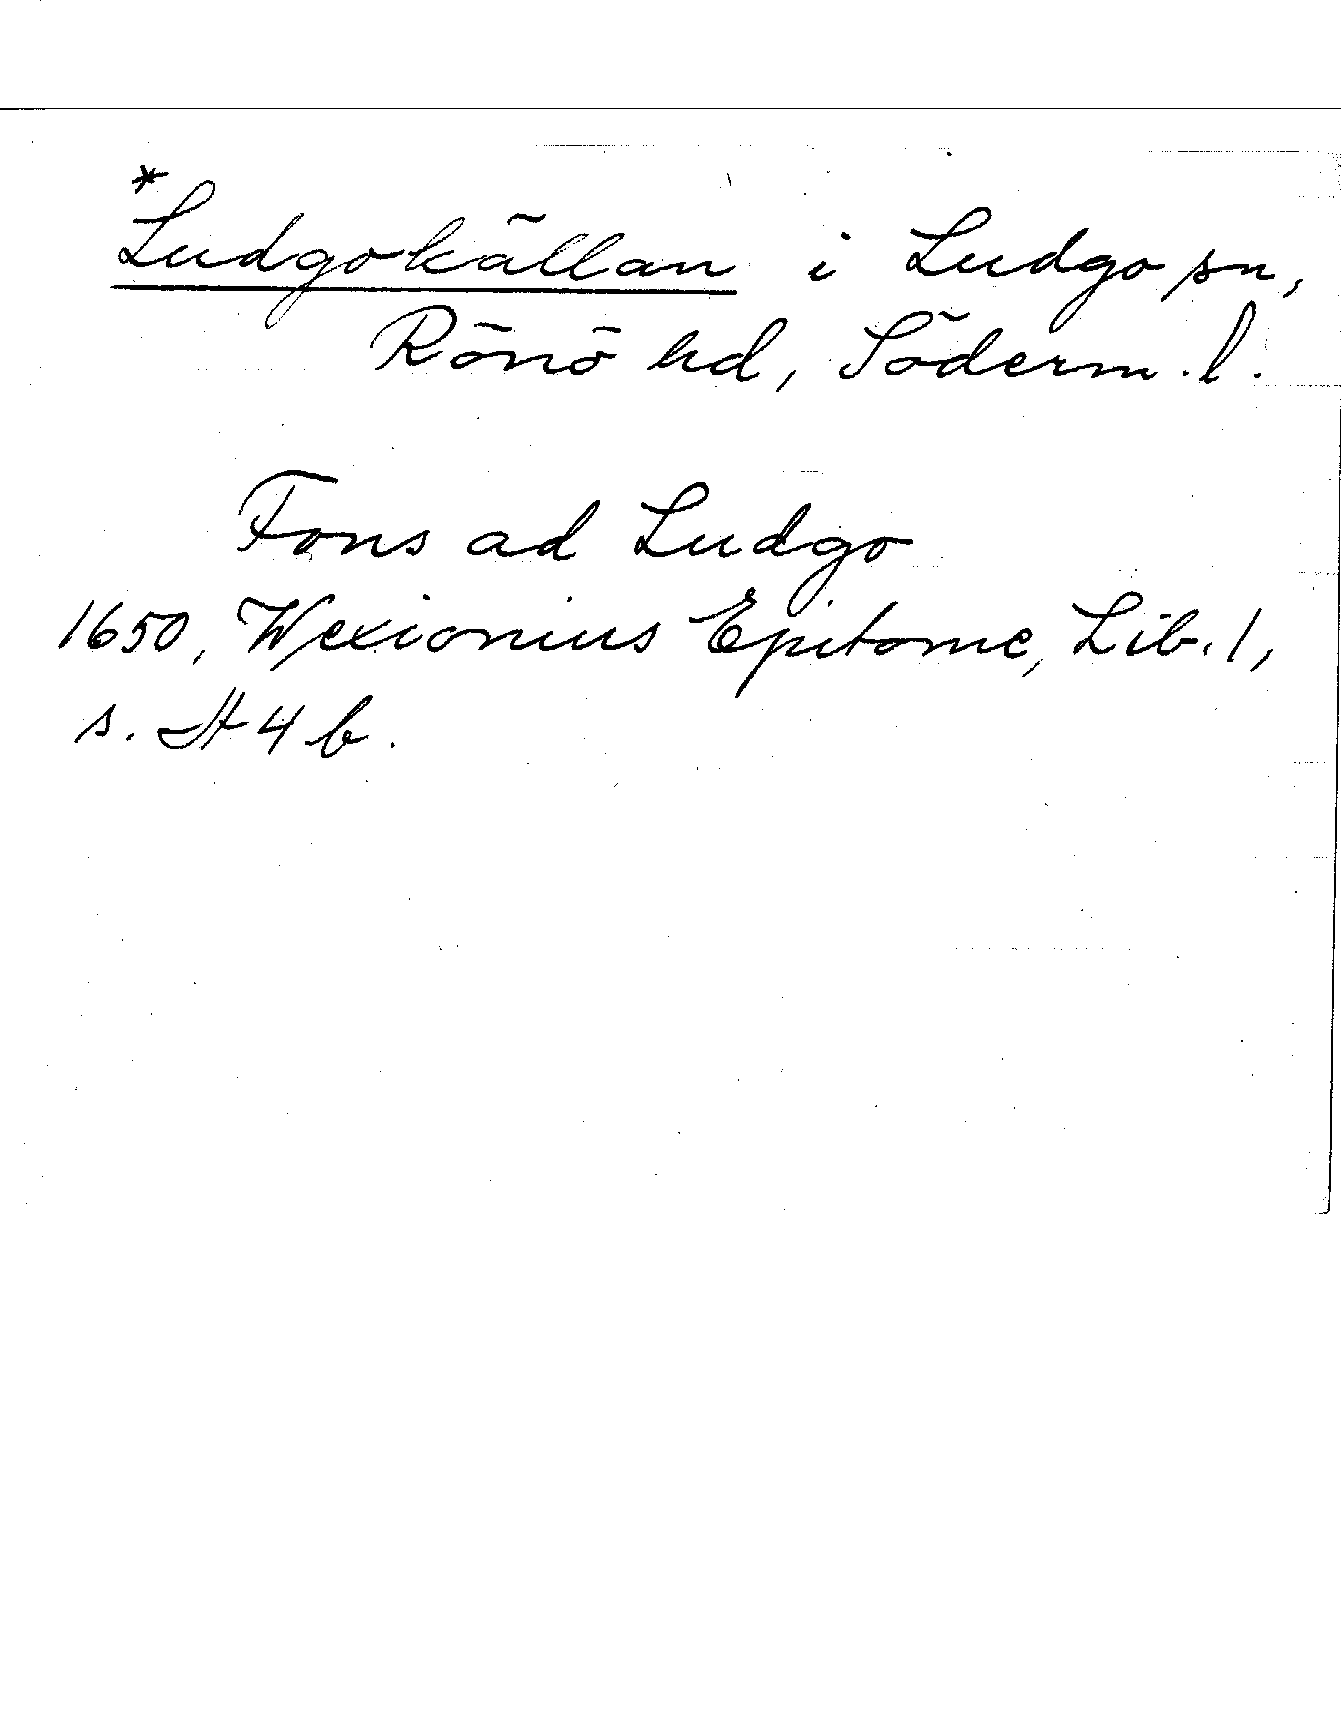 *Ludgokällan i Ludgo sn,
Rönö hd, Söderm. l.
Fons ad Ludgo
1650, Wexionius Epitome, Lib. 1,
s. H 4 b.